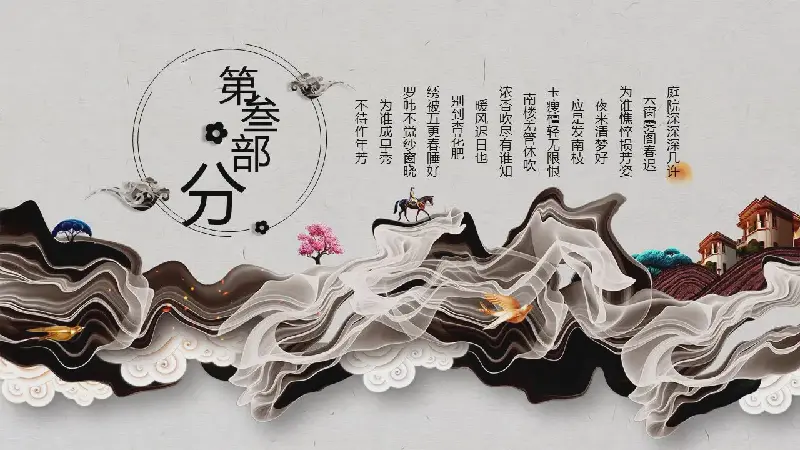 第叁部分
庭院深深深几许
云窗雾阁春迟
为谁憔悴损芳姿
夜来清梦好
应是发南枝
玉瘦檀轻无限恨
南楼羌管休吹
浓香吹尽有谁知
暖风迟日也
别到杏花肥
绣被五更春睡好
罗帏不觉纱窗晓
为谁成早秀
不待作年芳